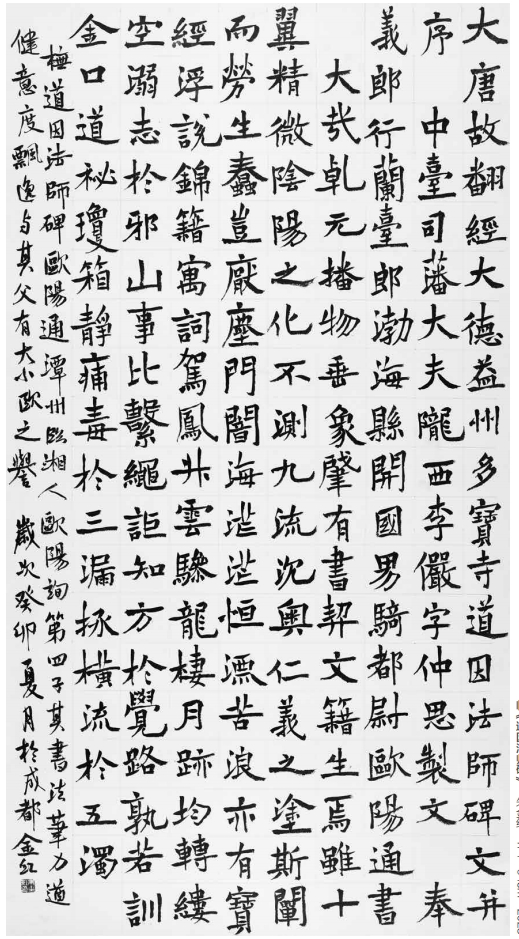 大唐故翻經大德益州多寶寺道因法師碑文并
序 中臺司藩大夫隴西李儼字仲思製文 奉
義郎行蘭臺郎渤海縣開國男騎都尉歐陽通書
大㢤乹元播物垂象肇有書契文籍生焉雖十
翼精微陰陽之化不測九流沉奧仁義之塗斯闡
而勞生蠢豈厭塵門闇海茫茫恒漂苦浪亦有寶
經浮說錦籍寓詞駕鳳升雲驂龍棲月跡均轉縷
空溺志於邪山事比繫繩詎知方於覺路孰若訓
金口道祕瓊箱靜痡毒於三漏拯橫流於五濁
橅道因法師碑歐陽通潭州臨湘人歐陽詢第四子其書法筆力遒
健意度飄逸与其父有大小歐之譽 歲次癸卯夏月於成都金紅